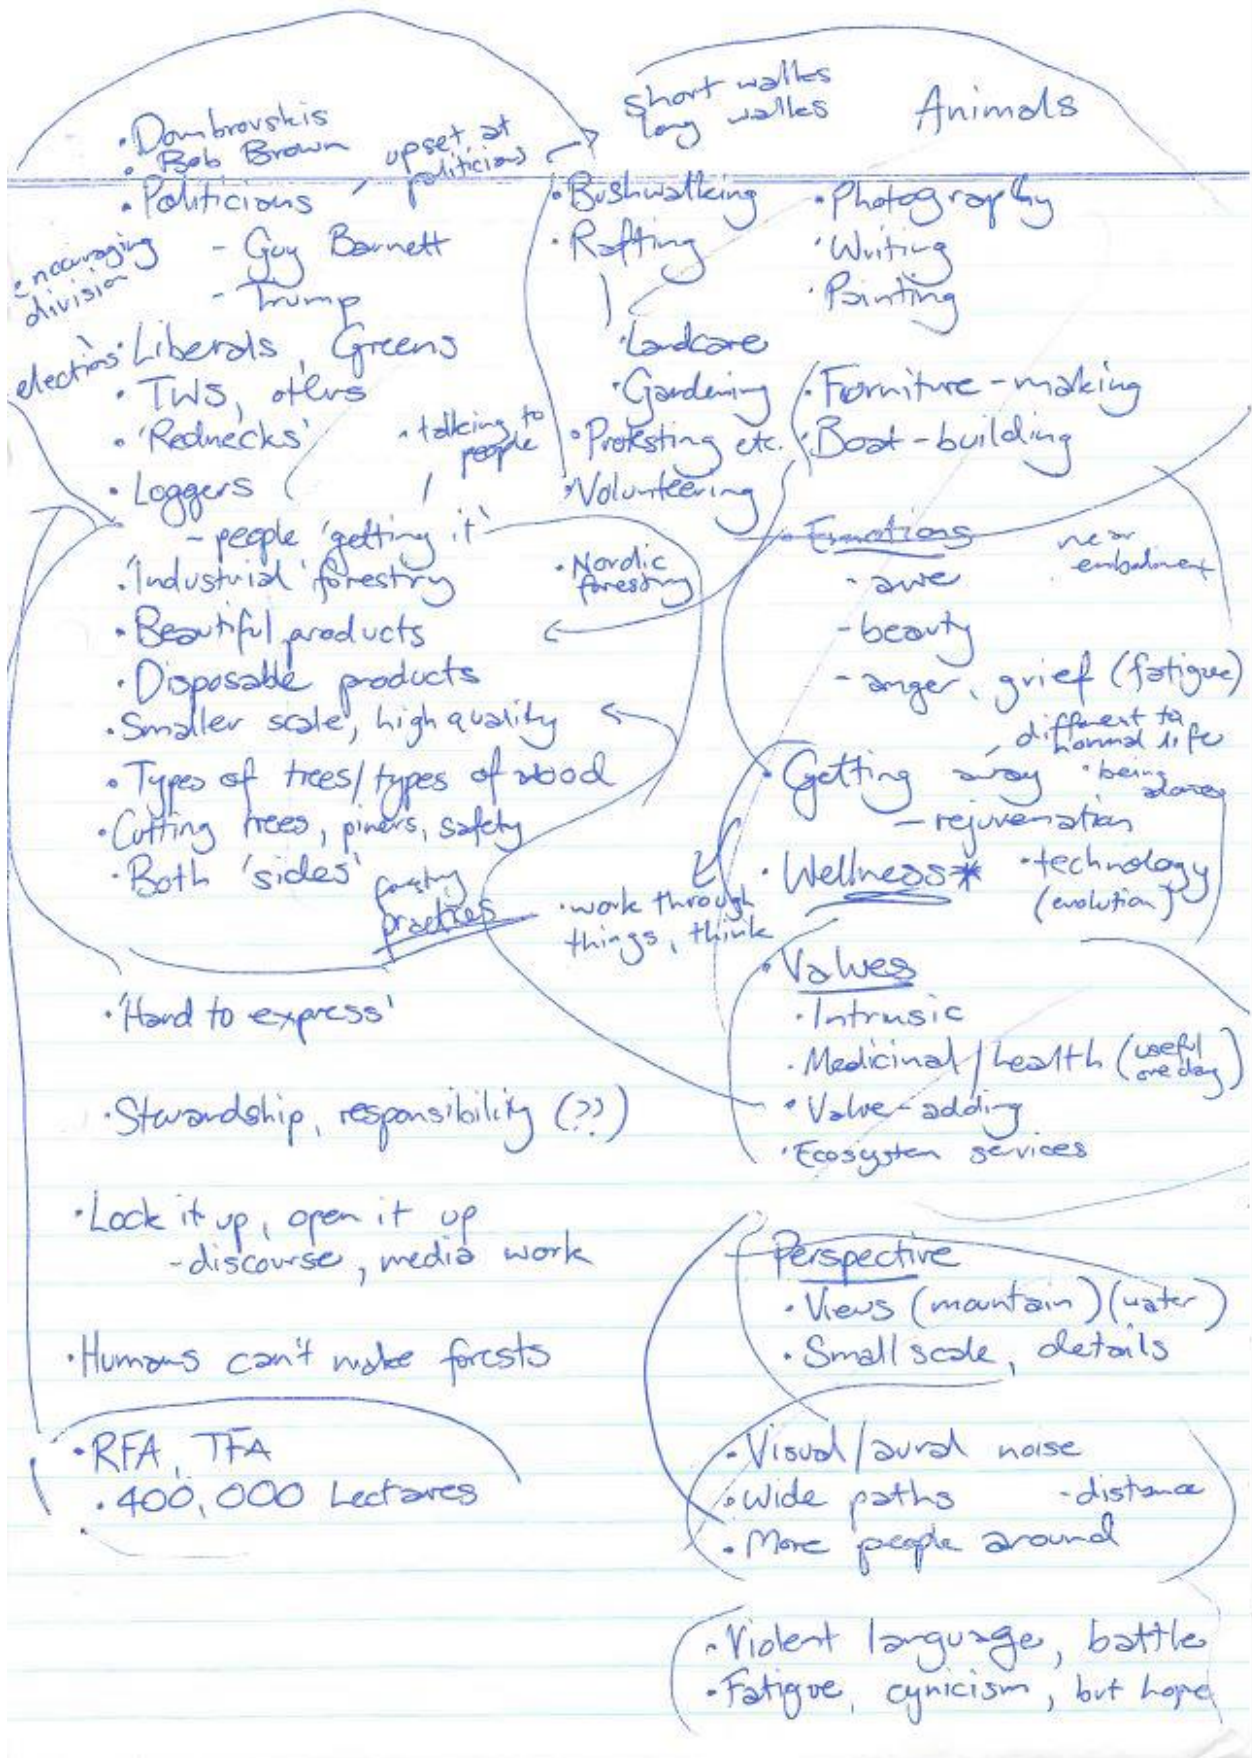 • Dombrovskis
• Bob Brown
upset at
politicians
• Politicians
- Guy Barnett
- Trump
encouraging
division
elections
• Liberals, Greens
• TWS, others
• 'Rednecks'
• talking to
people
• Loggers
- people 'getting it'
• 'Industrial' forestry
• Nordic
forestry
• Beautiful products
• Disposable products
• Smaller scale, high quality
• Types of trees/types of wood
• Cutting trees, piners, safety
• Both 'sides'
forestry
practices
• work through
things, think
• 'Hard to express'
• Stewardship, responsibility (??)
• Lock it up, open it up
- discourse, media work
• Humans can't make forests
• RFA, TFA
• 400,000 hectares
short walks
long walks
Animals
• Bushwalking
• Rafting
• Photography
• Writing
• Painting
• Landcare
• Gardening
• Protesting etc.
• Volunteering
• Furniture-making
• Boat-building
• Emotions
- awe
- beauty
- anger, grief (fatigue)
near
different to
normal life
• Getting away
• being
alone
- rejuvenation
• Wellness*
• technology
(evolution)
• Values
• Intrinsic
• Medicinal/health (useful
one day)
• Value-adding
• Ecosystem services
Perspective
• Views (mountain) (water)
• Small scale, details
• Visual/aural noise
• Wide paths - distance
• More people around
• Violent language, battle
• Fatigue, cynicism, but hope